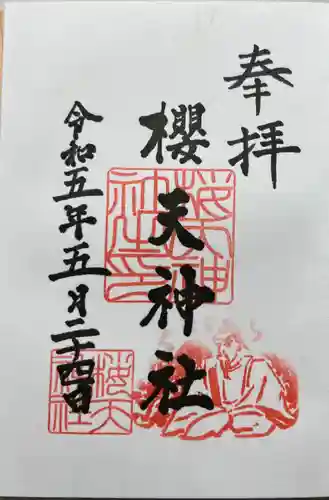 奉拝
櫻天神社
令和五年五月二十四日
櫻天神社之印
櫻天神社